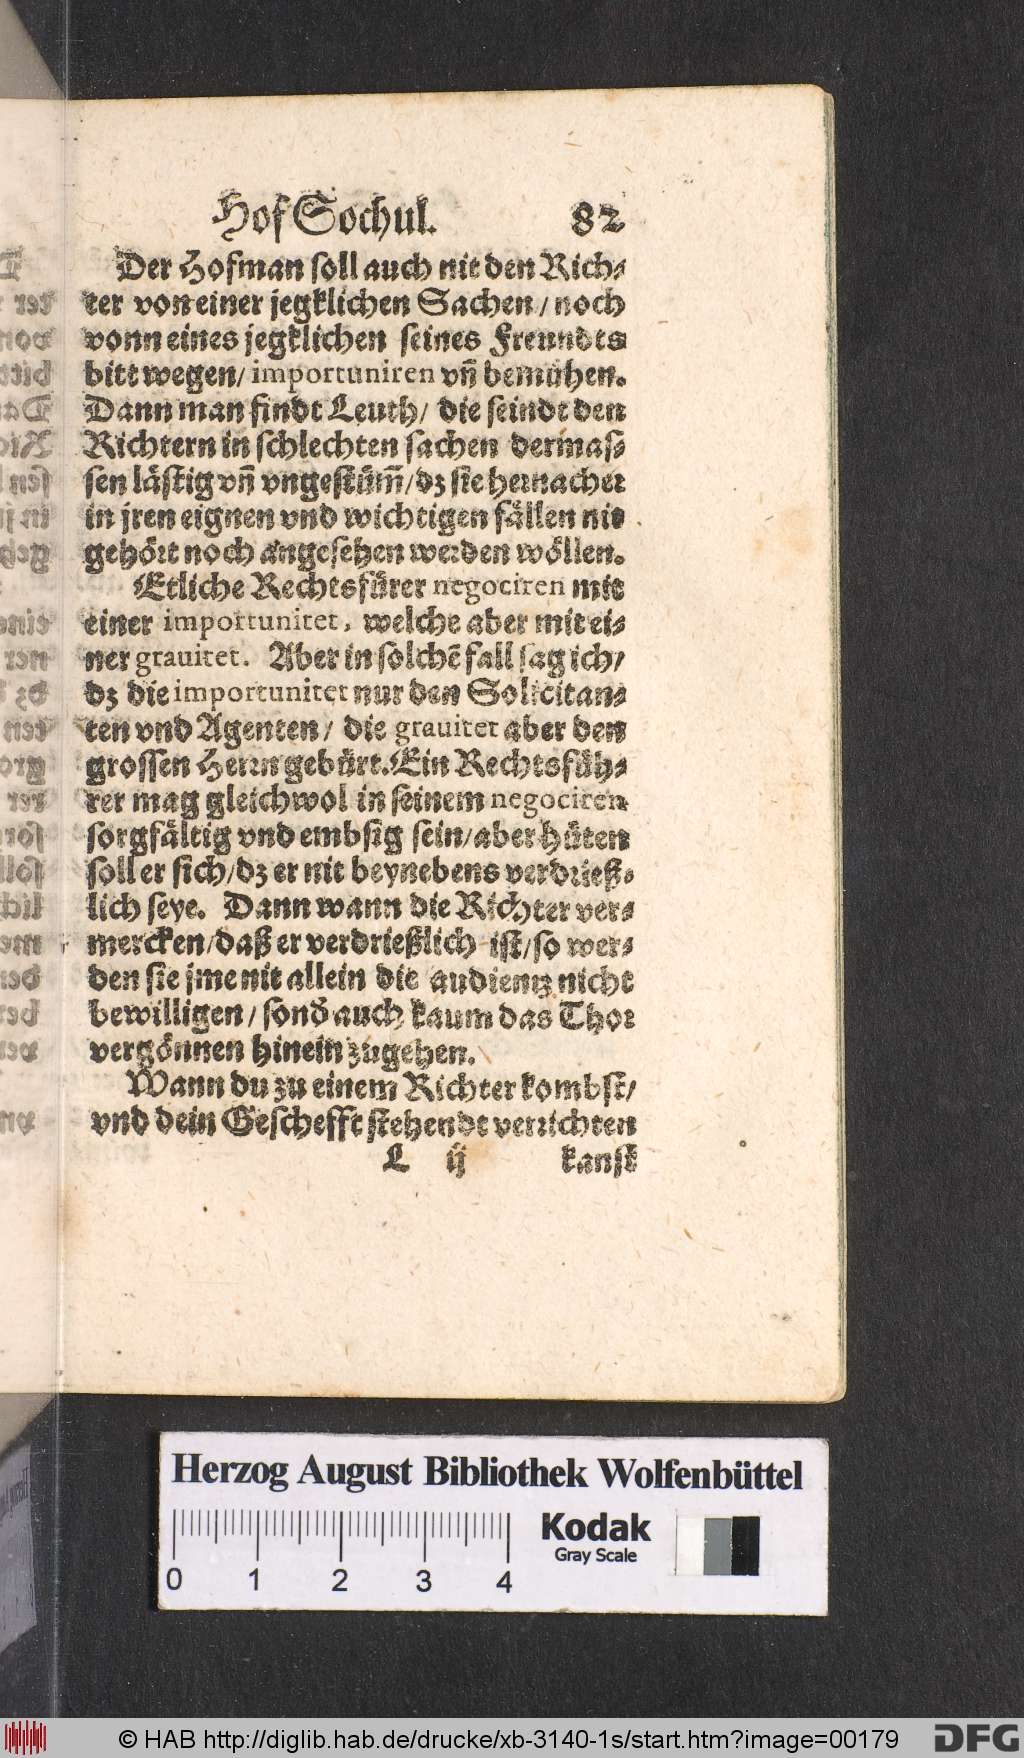 Hof Sochul. 82
Der Hofman soll auch nit den Rich⸗
ter von einer jegklichen Sachen / noch
vonn eines jegklichen seines Freundts
bitt wegen / importuniren vñ bemühen.
Dann man findt Leuth / die seindt den
Richtern in schlechten sachen dermas⸗
sen lästig vñ vngestüm̃ / dz sie hernacher
in jren eignen vnd wichtigen fällen nit
gehört noch angesehen werden wöllen.
Etliche Rechtsfürer negociren mit
einer importunitet, welche aber mit ei⸗
ner grauitet. Aber in solchẽ fall sag ich /
dz die importunitet nur den Solicitan⸗
ten vnd Agenten / die grauitet aber den
grossen Herrn gebürt. Ein Rechtsfüh⸗
rer mag gleichwol in seinem negociren
sorgfältig vnd embsig sein / aber hüten
soll er sich / dz er nit beynebens verdrieß⸗
lich seye. Dann wann die Richter ver⸗
mercken / daß er verdrießlich ist / so wer⸗
den sie jme nit allein die audientz nicht
bewilligen / sond̕ auch kaum das Thor
vergönnen hinein zugehen.
Wann du zu einem Richter kombst /
vnd dein Geschefft stehendt verrichten
L ij kanst
Herzog August Bibliothek Wolfenbüttel
Kodak
Gray Scale
0 1 2 3 4
© HAB http://diglib.hab.de/drucke/xb-3140-1s/start.htm?image=00179
DFG